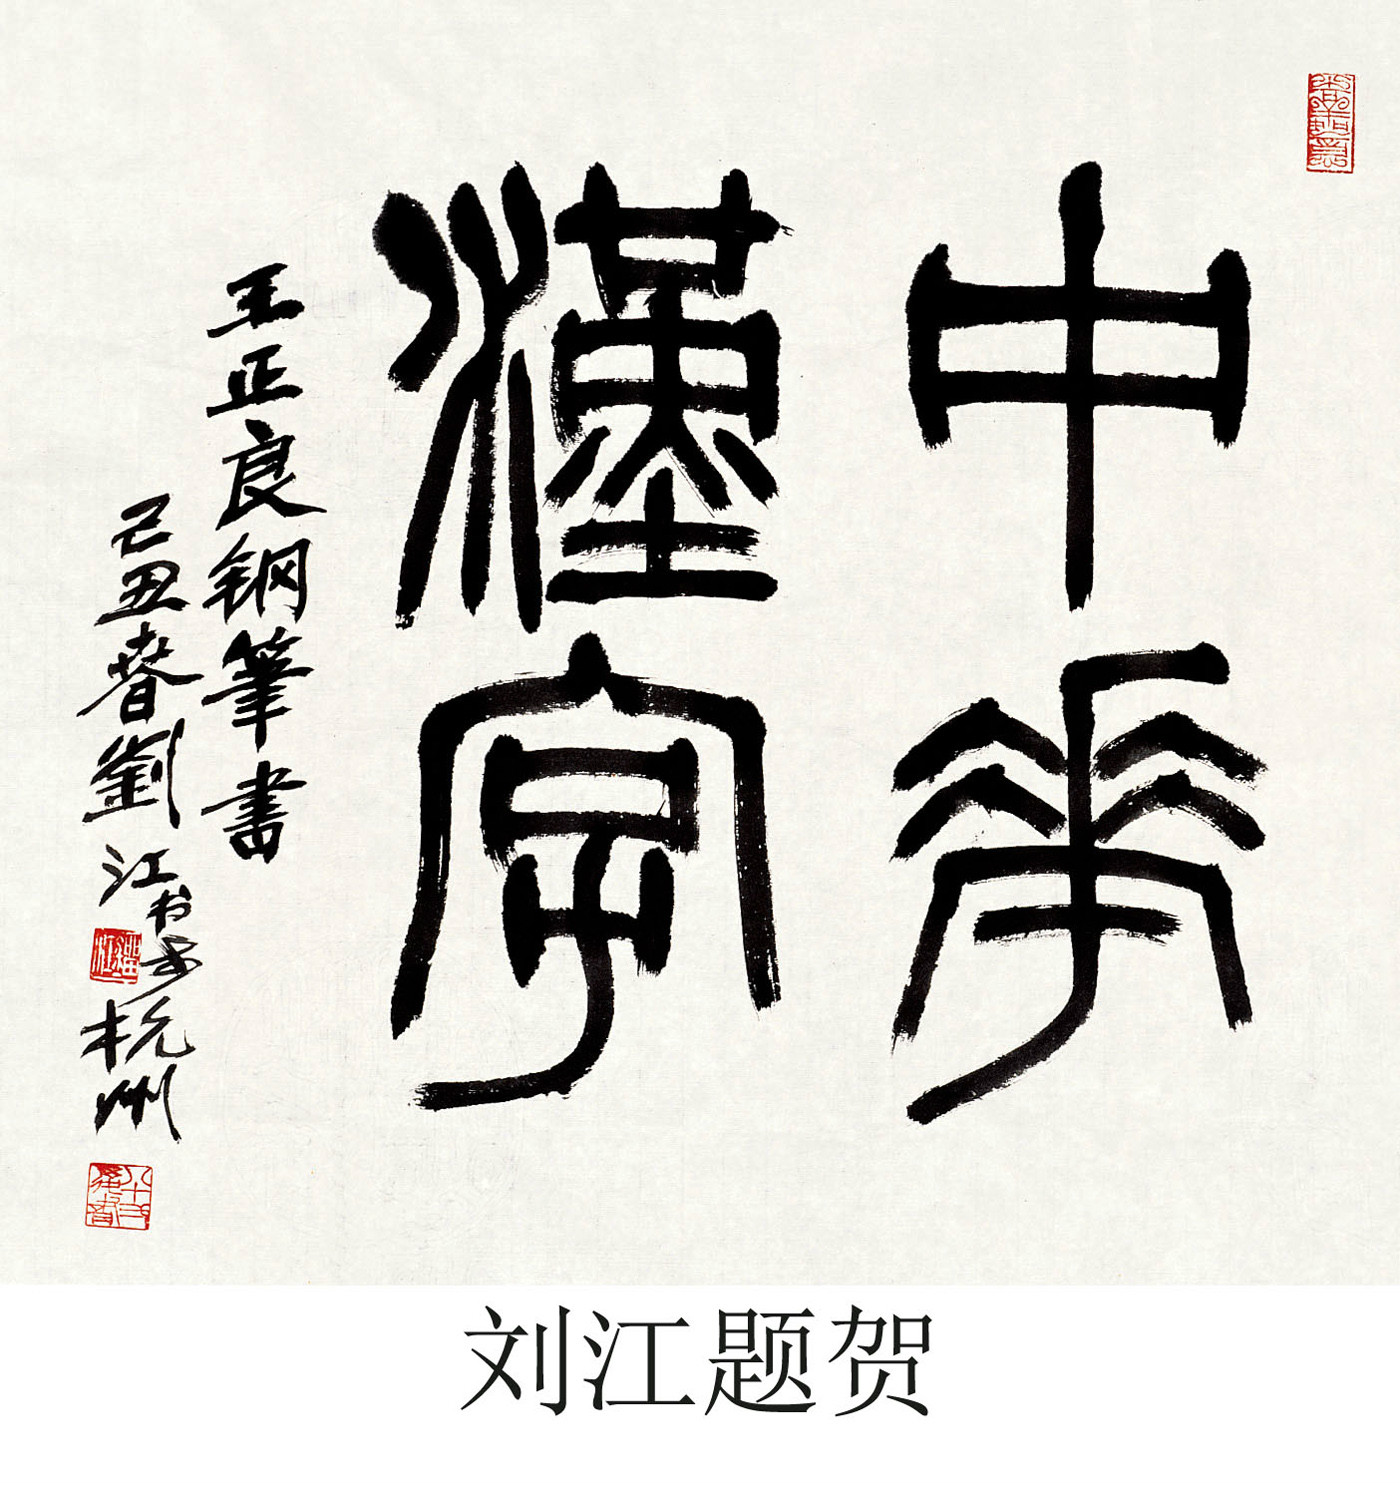 中華
漢字
王正良钢筆書
己丑春劉江书于杭州
刘江题贺